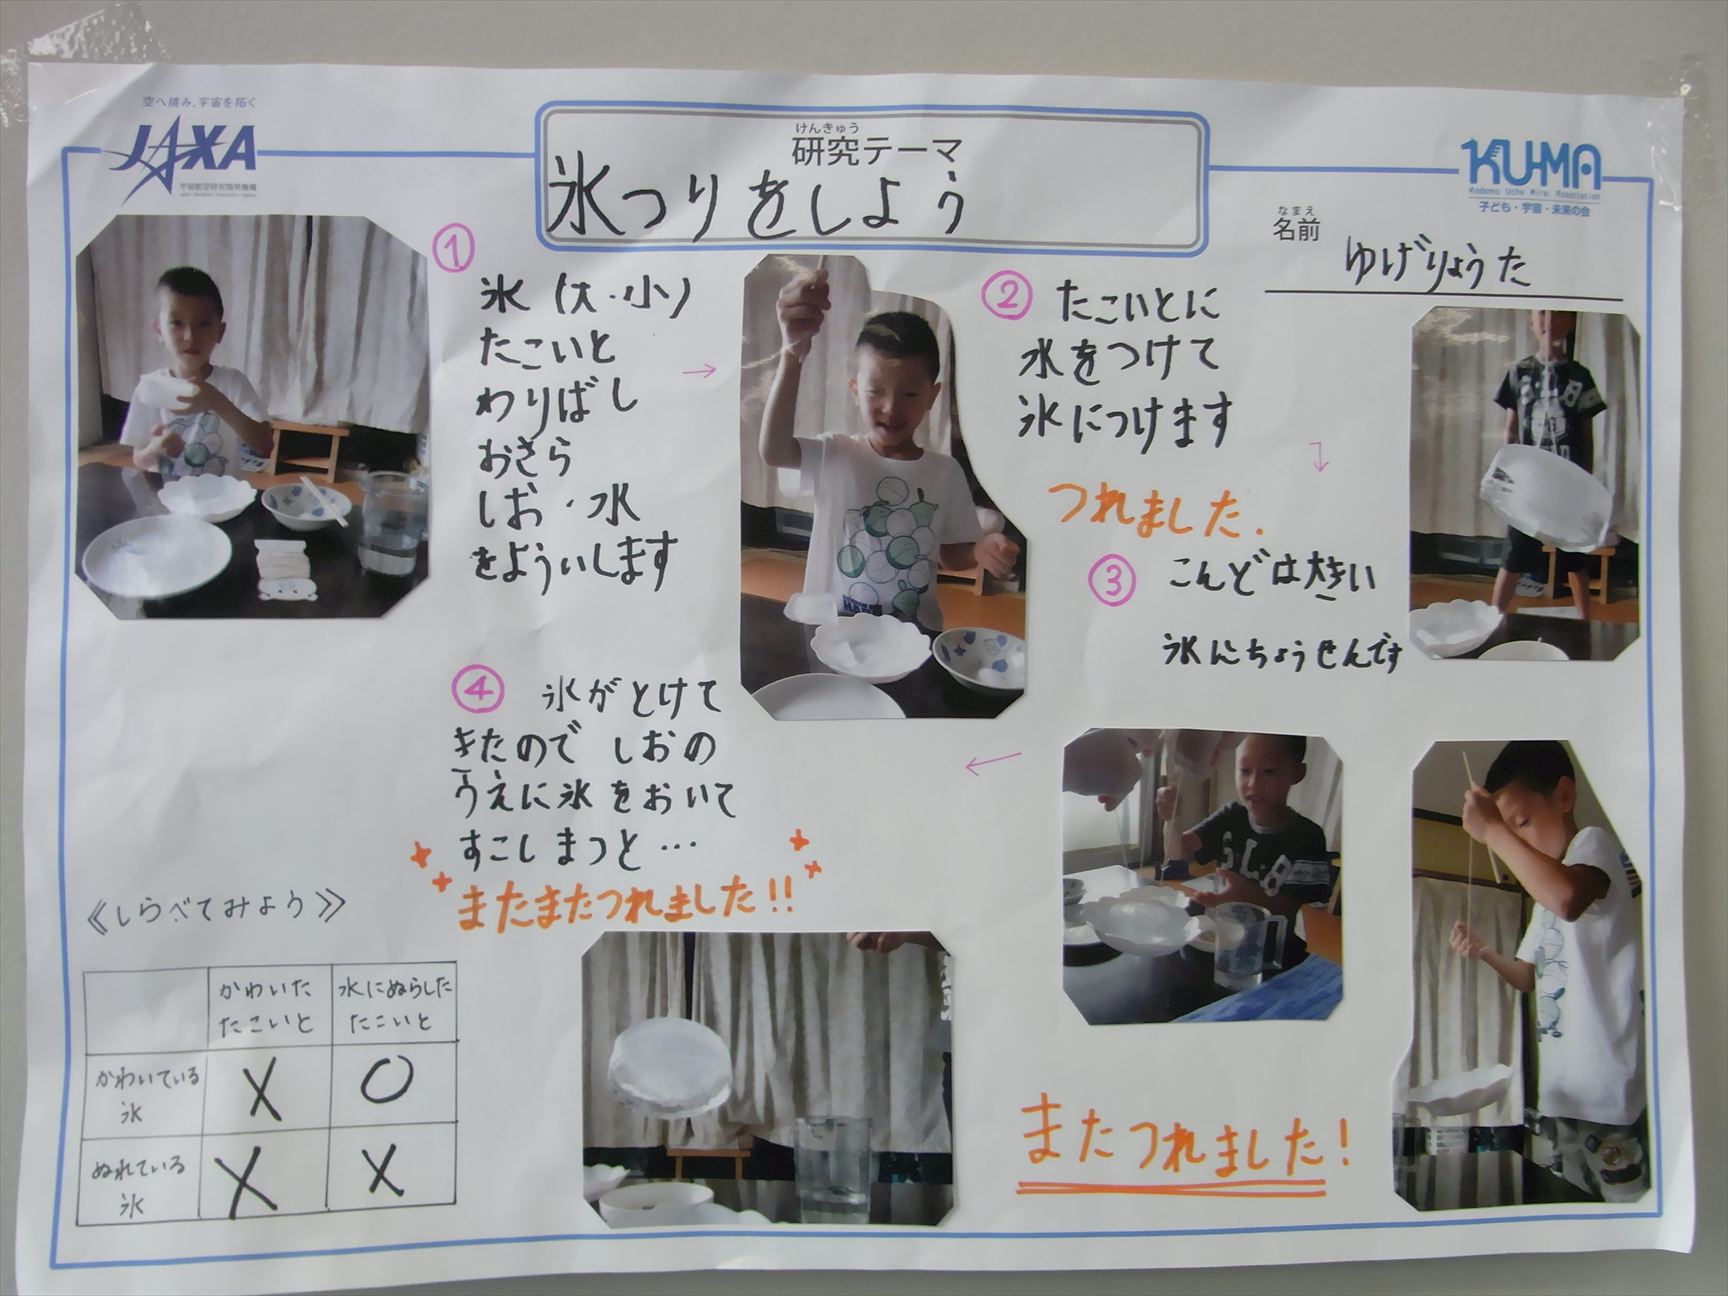 空へ挑み、宇宙を拓く
JAXA
宇宙航空研究開発機構
けんきゅう
研究テーマ
氷つりをしよう
KU-MA
Kodomo Uchu Mirai Association
子ども・宇宙・未来の会
なまえ
名前
ゆげりょうた
①
氷(大・小)
たこいと
わりばし
おさら
しお・水
をよういします
→
② たこいとに
水をつけて
氷につけます
つれました.
③ こんどは大きい
氷にちょうせんです
←
④ 氷がとけて
きたので しおの
うえに氷をおいて
すこしまつと…
またまたつれました!!
またつれました!
《しらべてみよう》
かわいた
たこいと
水にぬらした
たこいと
かわいている
氷
X
O
ぬれている
氷
X
X